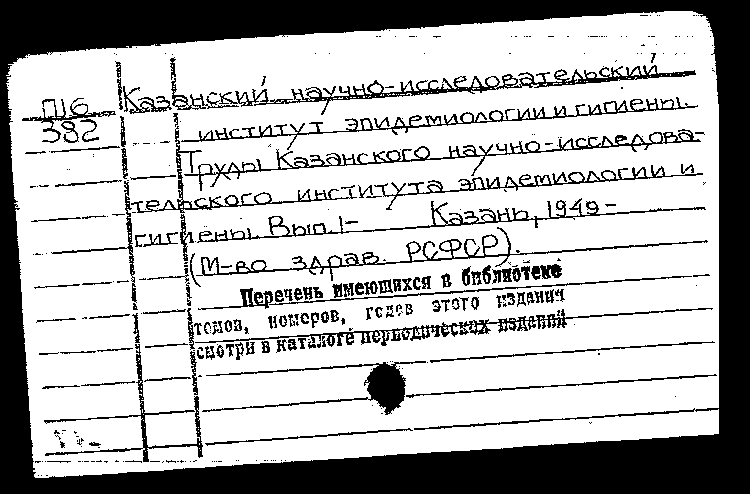 П16 Казанский научно-исследовательский
382 институт эпидемиологии и гигиены.
Труды Казанского научно-исследова-
тельского института эпидемиологии и
гигиены. Вып. 1- Казань, 1949-
(М-во здрав. РСФСР).
Перечень имеющихся в библиотеке
томов, номеров, годов этого издания
смотри в каталоге периодических изданий